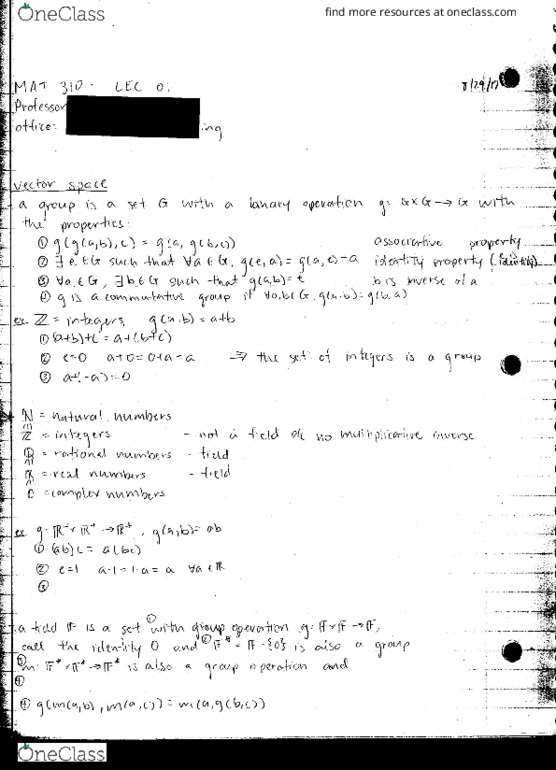 OneClass
find more resources at oneclass.com
MAT 310 - LEC 01
8/29/17
Professor
office: ing
vector space
a group is a set G with a binary operation g: G×G→G with
the properties:
① g(g(a,b),c) = g(a, g(b,c)) associative property
② ∃ e ∈ G such that ∀a ∈ G, g(e,a) = g(a,e) = a identity property (identity)
③ ∀a ∈ G, ∃ b ∈ G such that g(a,b) = e b is inverse of a
④ g is a commutative group if ∀a,b ∈ G, g(a,b) = g(b,a)
ex. ℤ = integers, g(a,b) = a+b
① (a+b)+c = a+(b+c)
② e=0 a+0=0+a=a ⇒ the set of integers is a group
③ a+(-a)=0
ℕ = natural numbers
ℤ = integers - not a field b/c no multiplicative inverse
ℚ = rational numbers - field
ℝ = real numbers - field
ℂ = complex numbers
ex g: ℝ⁺×ℝ⁺→ℝ⁺, g(a,b) = ab
① (ab)c = a(bc)
② e=1 a·1=1·a=a ∀a∈ℝ
③
a field 𝔽 is a set ① with group operation g: 𝔽×𝔽→𝔽,
call the identity 0 and ② 𝔽* = 𝔽-{0} is also a group
③ m: 𝔽*×𝔽*→𝔽* is also a group operation and
④ g(m(a,b), m(a,c)) = m(a, g(b,c))
OneClass